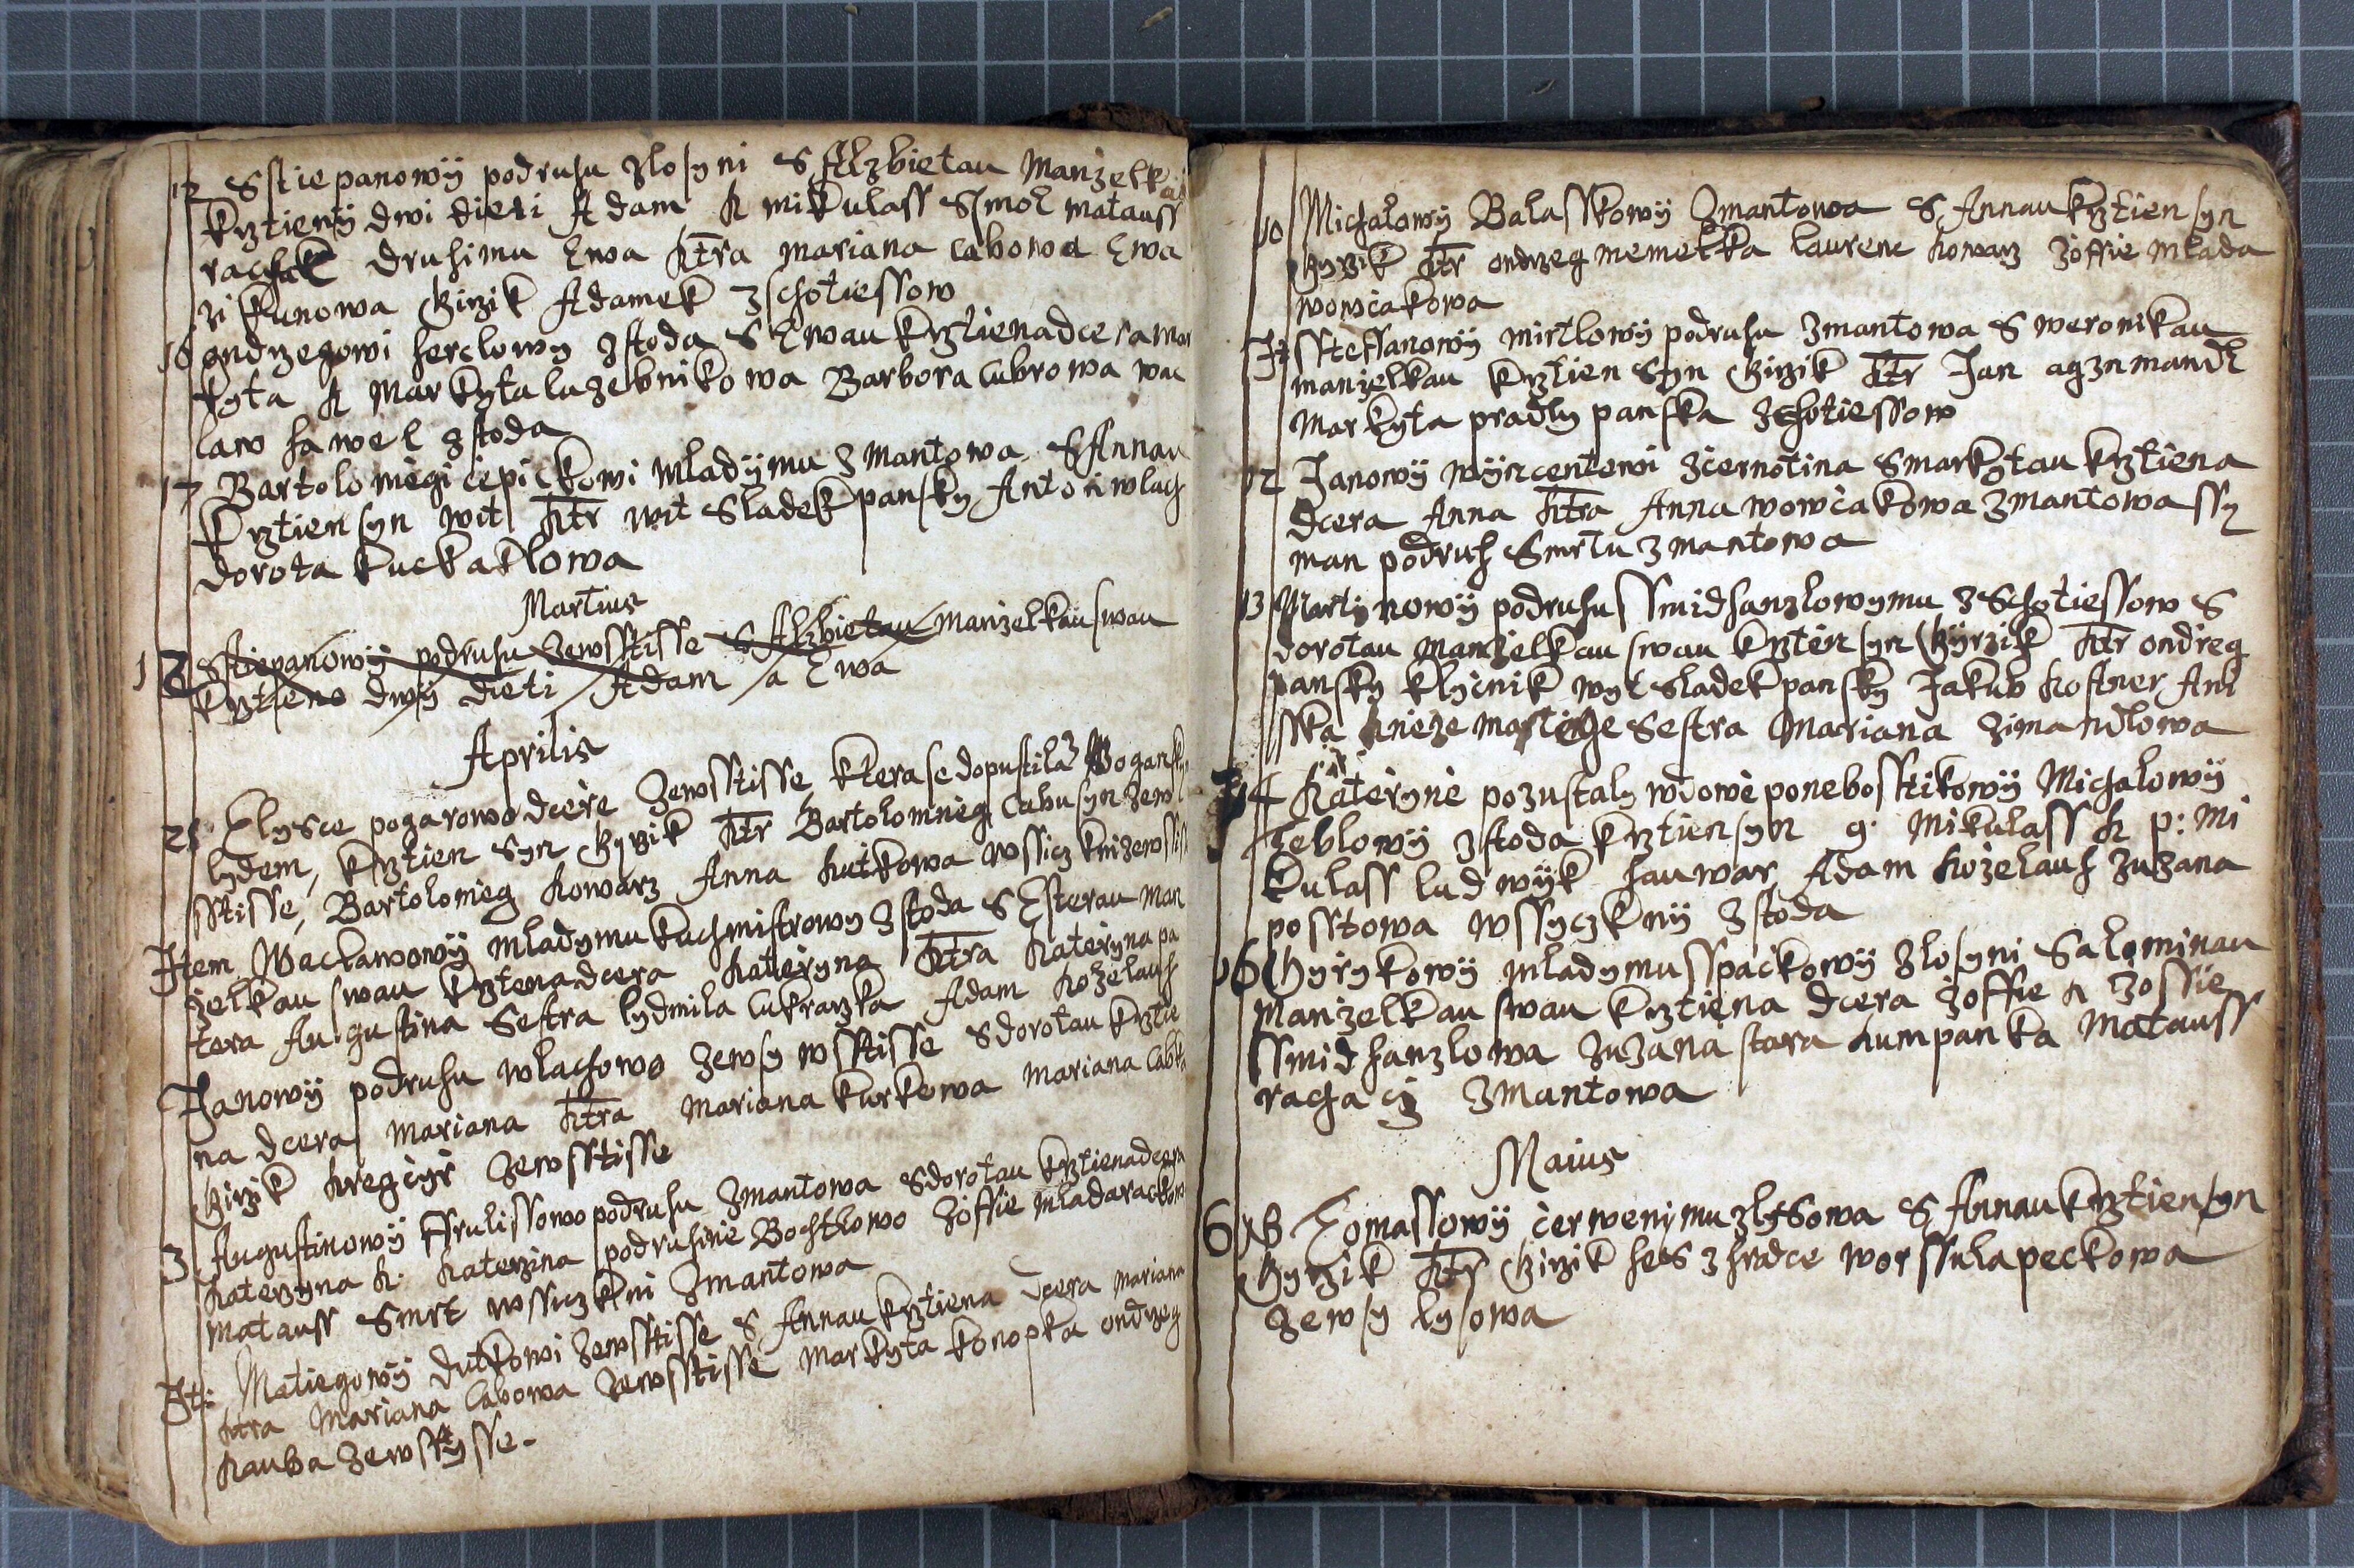 12 Sstiepanowÿ podruhu zlosyni S Alzbietau Manzelkau
krztienÿ dwi dieti Adam K mikulass Smol matauss
rachak druhimu Ewa ktra mariana cabowa Ewa
zikunowa Girzik Adamek z chotiessow
16 ondrzegowi herclowy z stoda S Ewau krztiena dcera mar
kyta K Markyta lazebnikowa Barbora cubrowa wac
law hawel z stoda
17 Bartolomiegi cepickowi mladÿmu z Mantowa S Annau
krztien syn wit ktr wit Sladek pansky Anton wlach
dorota kuckaklowa
Martius
13 Stiepanowÿ podruhu zewsstisse S Alzbietau manzelkau swau
krztieno dwÿ dieti Adam a Ewa
Aprilis
21 Elysce pogarowo dceře zewsstisse ktera se dopustila z Wogansky
lydem, krztien Syn Gyrzik ktr Bartolomieg Cabu syn zew
sstisse, Bartolomieg kowarz Anna kutkowa wssiczkni zewssti
Item Waclawowÿ mladymu kuchmistrowy z stoda S Esterau man
zelkau swau krztena dcera kateryna ktra kateryna pa
tera Augustina Sestra lydmila cukrarzka Adam kozelauh
Janowÿ podruhu wlachowo zewsy wsstisse S dorotau krztie
na dcera mariana ktra mariana kurkowa mariana cabo
Girzik kregcyř zewsstisse
3 Augustinowÿ Ffrulissowo podruhu zmantowa S dorotau krztiena dcera
katerzyna k. katerzina podruhinie Bochtlowo zoffie mlada rackow
matauss Smrt wssiczkni zmantowa
It: Matiegowÿ dutkowi zewsstisse S Annau krztiena dcera mariana
ktra mariana cabowa zewsstisse markyta konopka ondrzeg
kauba zewsstysse.
10 Michalowÿ Balasskowÿ zmantowa S Annau krztien syn
Gyrzik ktr ondrzeg memetka laurenc kowarz zoffie mlada
wowcakowa
It: ssteffanowÿ mirtlowÿ podruhu zmantowa S weronikau
manzelkau krztien Syn Girzik ktr Jan agznmandl
markyta pradly panska z chotiessow
12 Janowÿ wÿncentowi zcernotina S markytau krztiena
dcera Anna ktra Anna wowcakowa zmantowa ssy
man podruh Smrtu zmantowa
13 Martynowÿ podruhu ssmidhanzlowymu z Chotiessow S
dorotau manzelkau swau krztěn syn Gÿrzik ktr ondreg
pansky klycnik wyt sladek pansky Jakub kostner Ani
sska knieze Sestra Mariana zimandlowa
14 Kateřyně pozustaly wdowě po nebosstikowÿ Michalowÿ
Teblowÿ z stoda krztien syn g. Mikulass k p: Mi
kulass ludwÿk hauwar Adam kozelauh zuzana
posstowa wssyczknÿ z stoda
16 Gyrykowÿ mladymu sspackowÿ zlosyni Salominau
manzelkau swau krztiena dcera zoffie k zoffie
ssmidhanzlowa zuzana stara kumpanka Matauss
rachacy zmantowa
Maius
6 Tomassowÿ cerwenymu zlysowa S Annau krztien syn
Gyrzik ktr Girzik hes z hradce worssula peckowa
zewsy lysowa